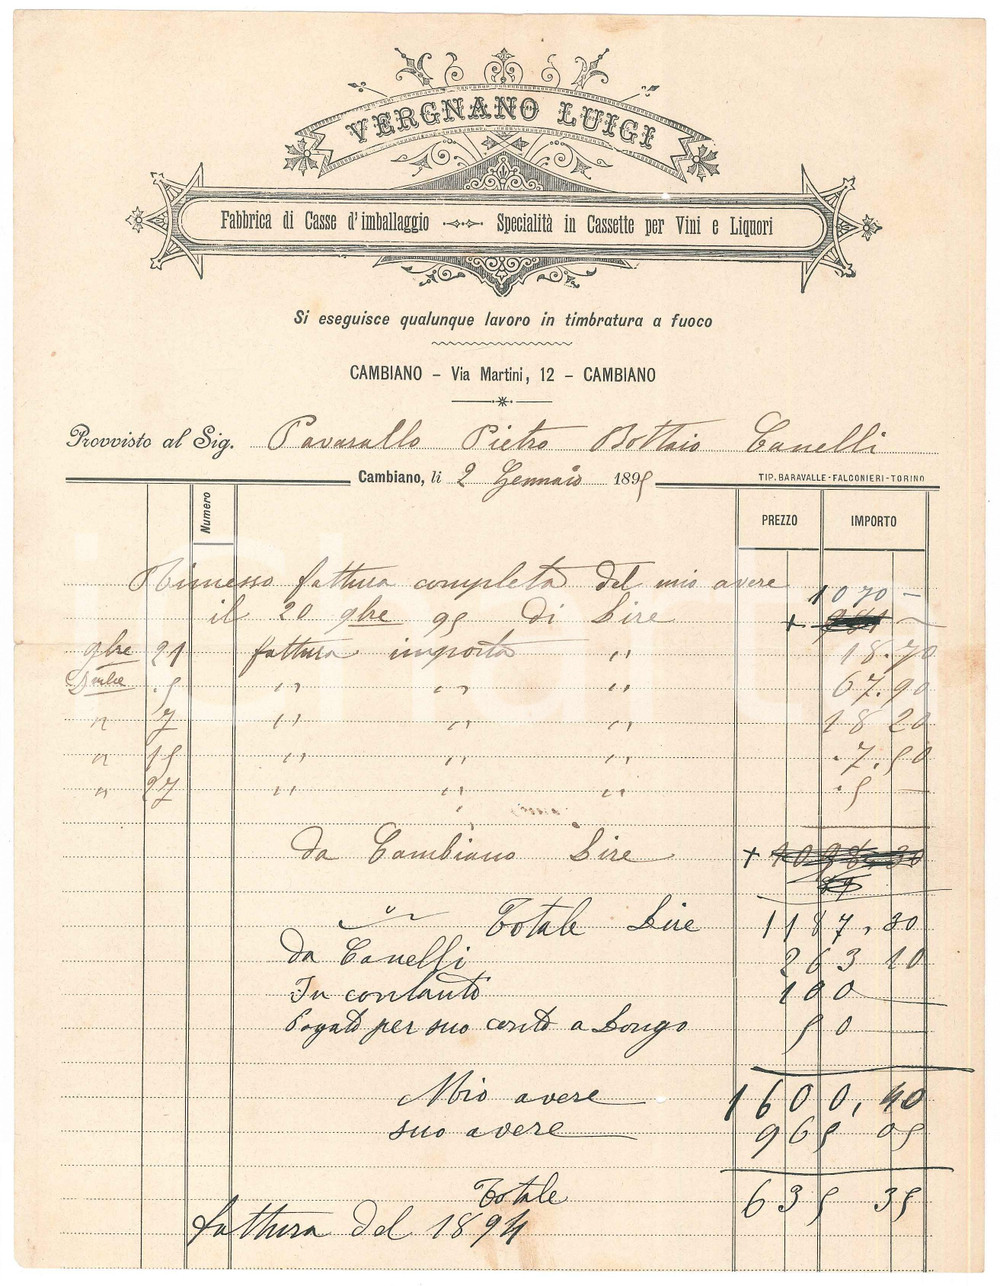 VERGNANO LUIGI
Fabbrica di Casse d'imballaggio Specialità in Cassette per Vini e Liquori
Si eseguisce qualunque lavoro in timbratura a fuoco
CAMBIANO – Via Martini, 12 – CAMBIANO
Provvisto al Sig. Pavarallo Pietro Bottaio Canelli
Cambiano, li 2 Gennaio 1895
TIP. BARAVALLE-FALCONIERI-TORINO
Numero PREZZO IMPORTO
Rimesso fattura completa del mio avere 1070 –
il 20 9bre 95 di Lire +
9bre 21 fattura importo " 18.70
5 " " " 67.90
" 7 " " " 18 20
" 15 " " " 7.50
" 27 " " " 5 –
da Cambiano Lire +
Totale Lire 1187,30
da Canelli 263 10
In contanti 100
Pagato per suo conto a Longo 50 –
Mio avere 1600,40
suo avere 965 05
Totale 635 35
fattura del 1894